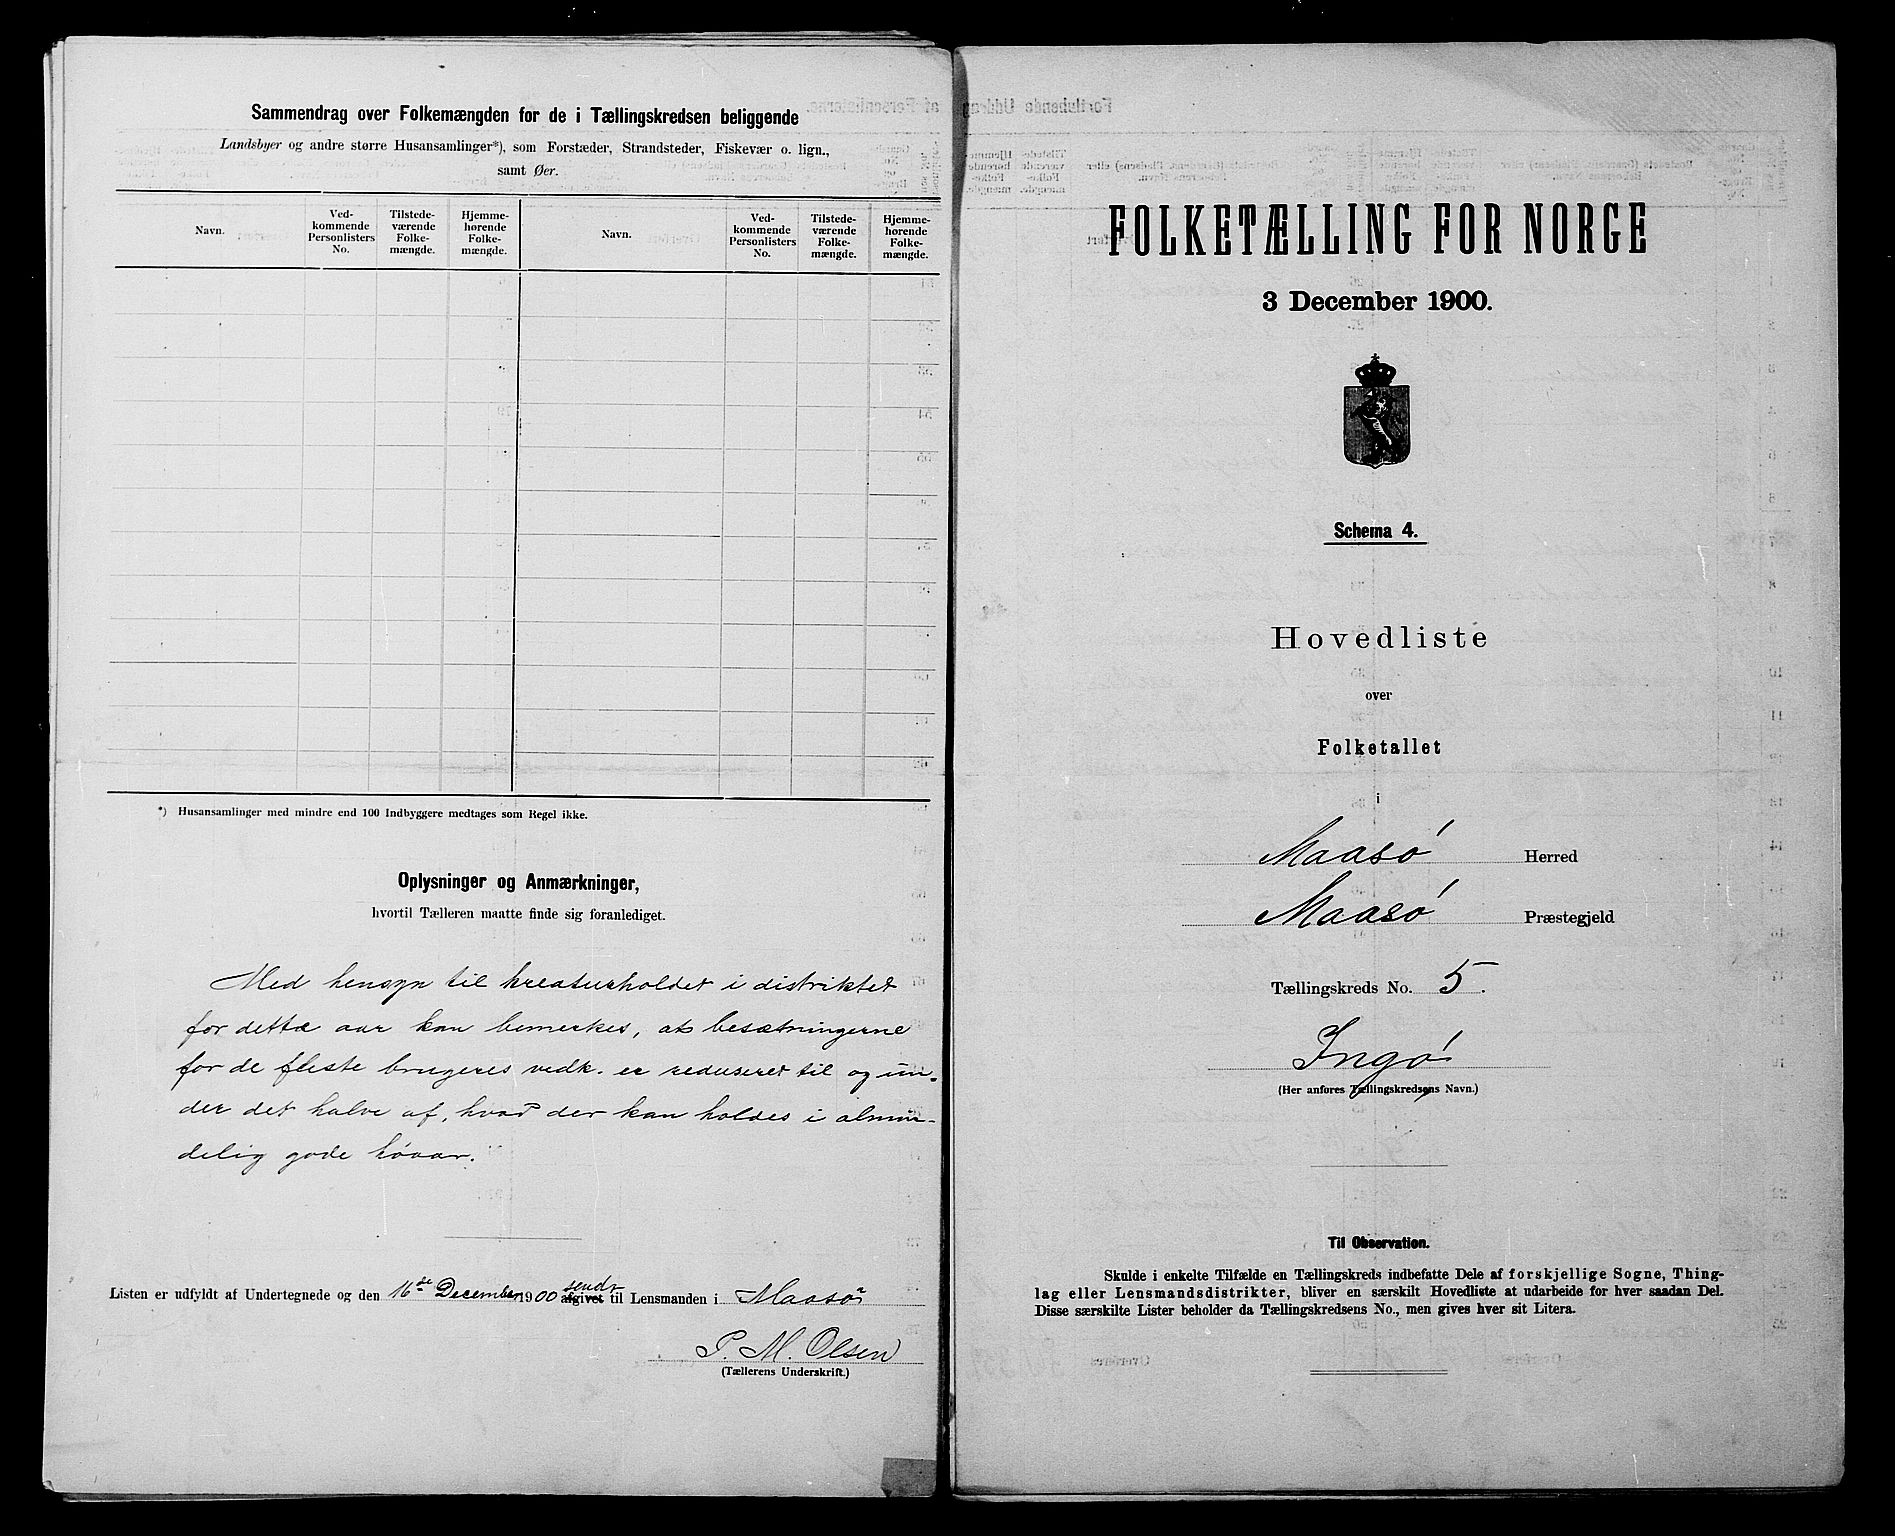 Sammendrag over Folkemængden for de i Tællingskredsen beliggende
Landsbyer og andre større Husansamlinger*), som Forstæder, Strandsteder, Fiskevær o. lign.,
samt Øer.
Navn.
Ved-
kommende
Personlisters
No.
Tilstede-
værende
Folke-
mængde.
Hjemme-
hørende
Folke-
mængde.
Navn.
Ved-
kommende
Personlisters
No.
Tilstede-
værende
Folke-
mængde.
Hjemme-
hørende
Folke-
mængde.
*) Husansamlinger med mindre end 100 Indbyggere medtages som Regel ikke.
Oplysninger og Anmærkninger,
hvortil Tælleren maatte finde sig foranlediget.
Med hensyn til kreaturholdet i distriktet
for dette aar kan bemerkes, at besætningerne
for de fleste brugeres vedk. er reduseret til og un-
der det halve af, hvad der kan holdes i almin-
delig gode høaar.
sendt
Listen er udfyldt af Undertegnede og den 16de December 1900 afgivet til Lensmanden i Maasø
P. M. Olsen
(Tællerens Underskrift.)
FOLKETÆLLING FOR NORGE
3 December 1900.
Schema 4.
Hovedliste
over
Folketallet
i
Maasø Herred
Maasø Præstegjeld
Tællingskreds No. 5.
Ingø
(Her anføres Tællingskredsens Navn.)
Til Observation.
Skulde i enkelte Tilfælde en Tællingskreds indbefatte Dele af forskjellige Sogne, Thing-
lag eller Lensmandsdistrikter, bliver en særskilt Hovedliste at udarbeide for hver saadan Del.
Disse særskilte Lister beholder da Tællingskredsens No., men gives hver sit Litera.